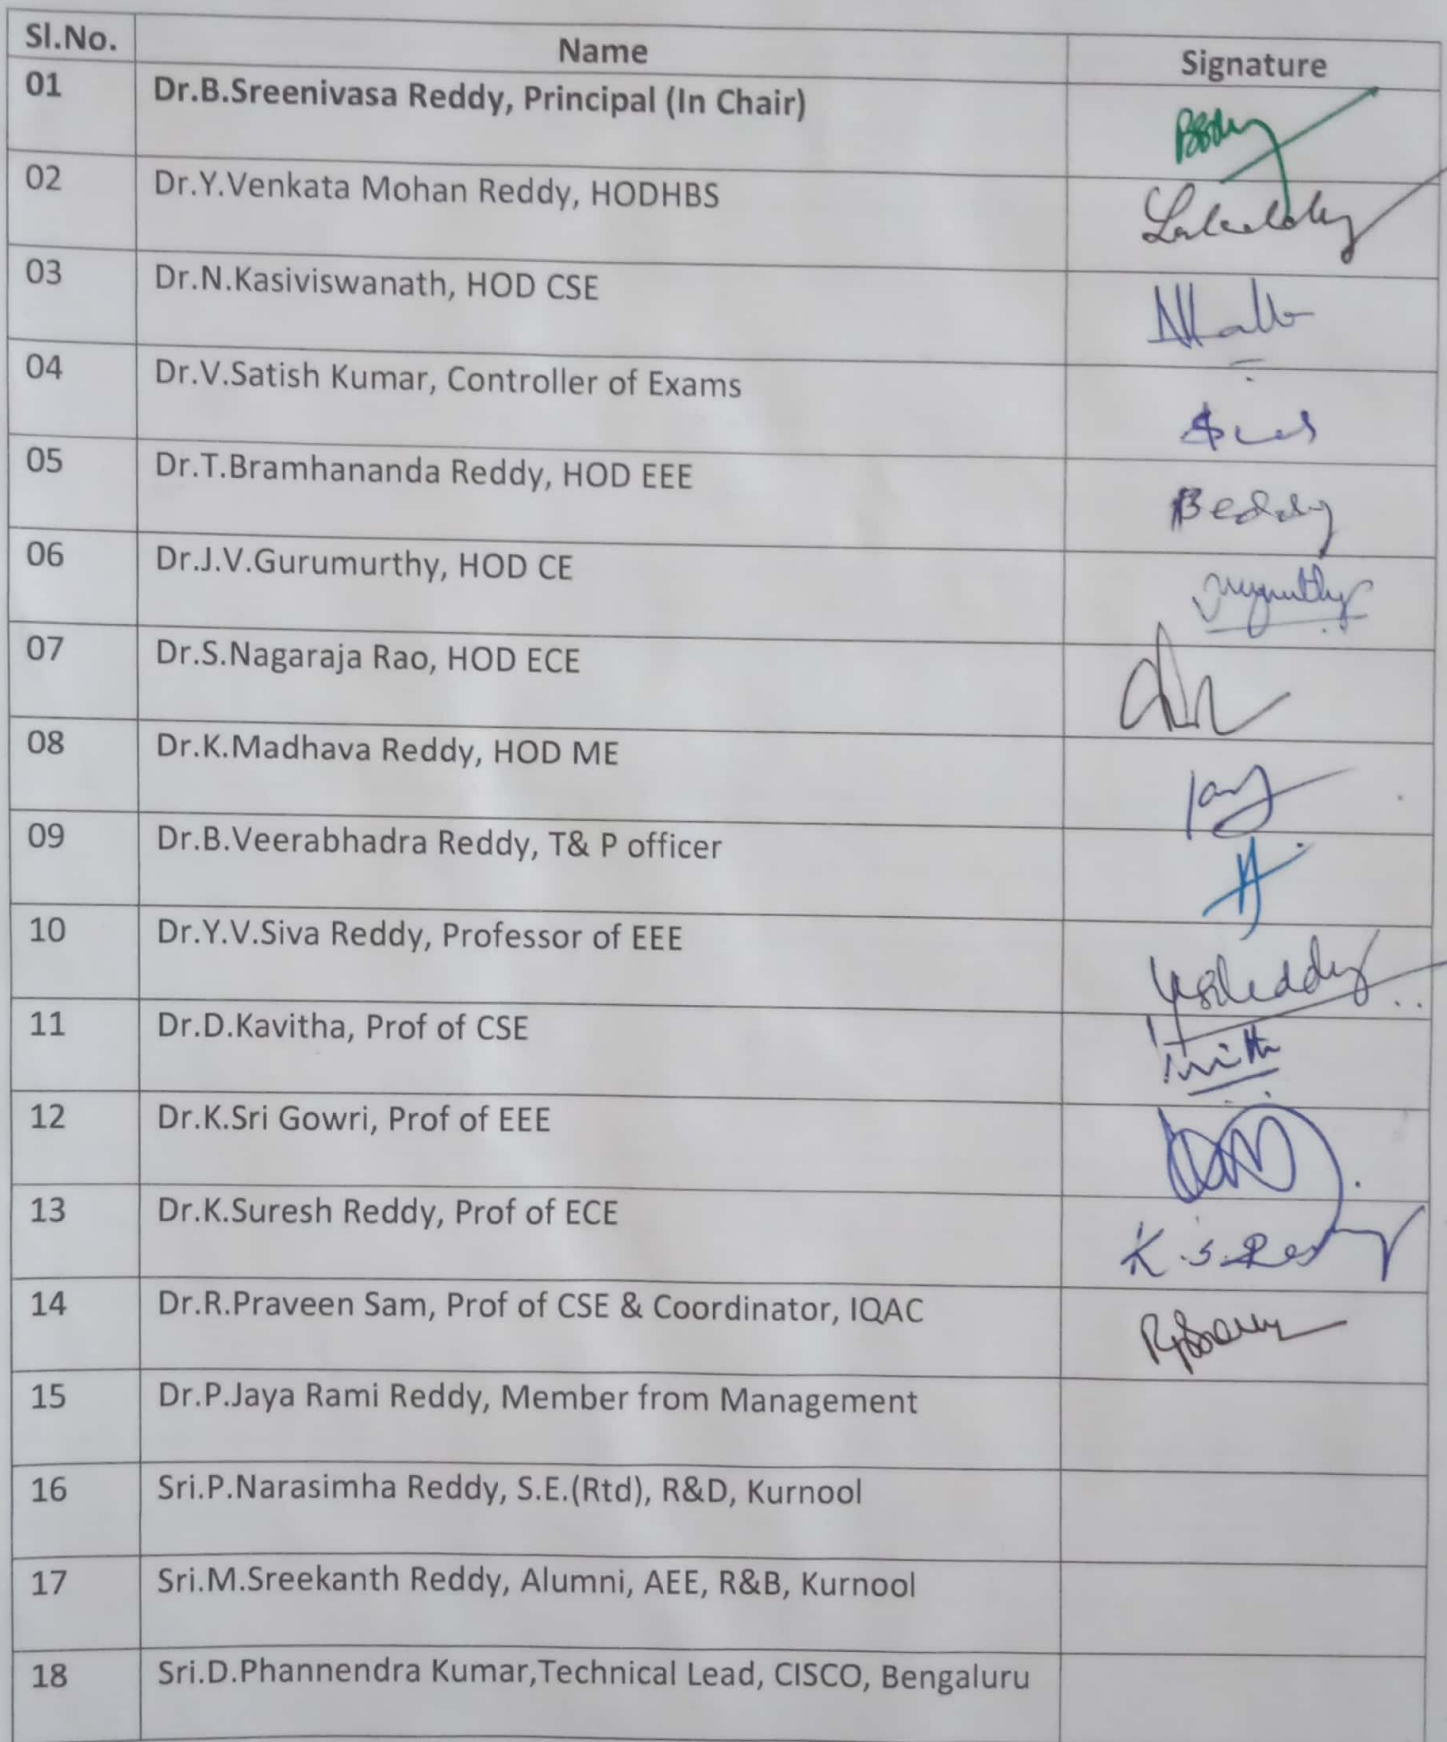 Sl.No. Name Signature
01 Dr.B.Sreenivasa Reddy, Principal (In Chair)
02 Dr.Y.Venkata Mohan Reddy, HODHBS
03 Dr.N.Kasiviswanath, HOD CSE
04 Dr.V.Satish Kumar, Controller of Exams
05 Dr.T.Bramhananda Reddy, HOD EEE
06 Dr.J.V.Gurumurthy, HOD CE
07 Dr.S.Nagaraja Rao, HOD ECE
08 Dr.K.Madhava Reddy, HOD ME
09 Dr.B.Veerabhadra Reddy, T& P officer
10 Dr.Y.V.Siva Reddy, Professor of EEE
11 Dr.D.Kavitha, Prof of CSE
12 Dr.K.Sri Gowri, Prof of EEE
13 Dr.K.Suresh Reddy, Prof of ECE
14 Dr.R.Praveen Sam, Prof of CSE & Coordinator, IQAC
15 Dr.P.Jaya Rami Reddy, Member from Management
16 Sri.P.Narasimha Reddy, S.E.(Rtd), R&D, Kurnool
17 Sri.M.Sreekanth Reddy, Alumni, AEE, R&B, Kurnool
18 Sri.D.Phannendra Kumar,Technical Lead, CISCO, Bengaluru